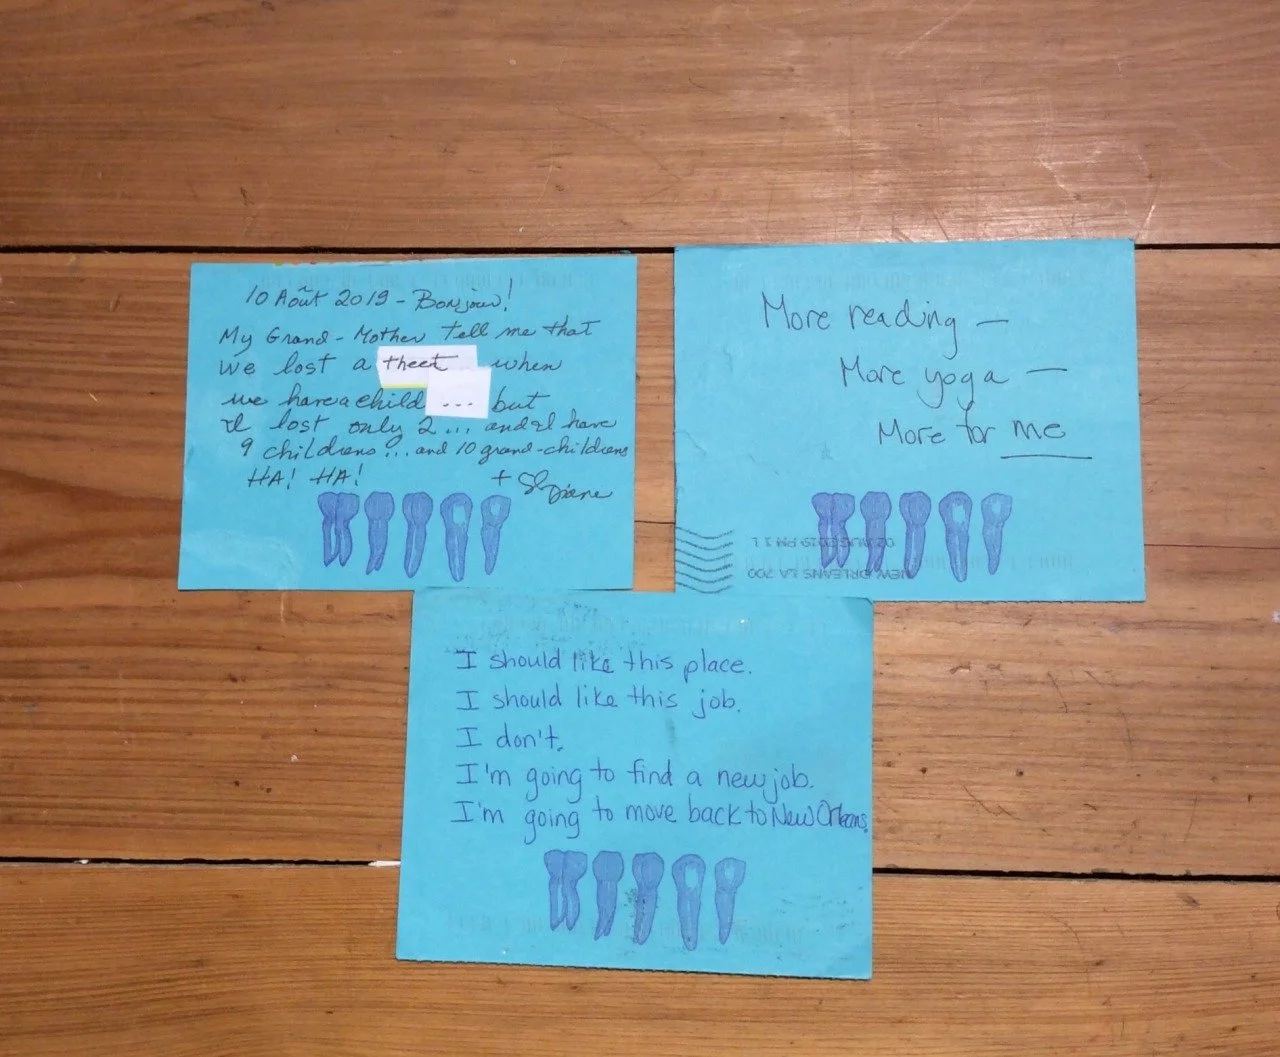 10 Août 2019 - Bonjour!
My Grand-Mother tell me that
we lost a theet when
we have a child ... but
I lost only 2 ... and I have
9 childrens!... and 10 grand-childrens
HA! HA! + Diane
More reading —
More yoga —
More for me
02 AUG 2019 PM 1 L
NEW ORLEANS LA 700
I should like this place.
I should like this job.
I don't.
I'm going to find a new job.
I'm going to move back to New Orleans.